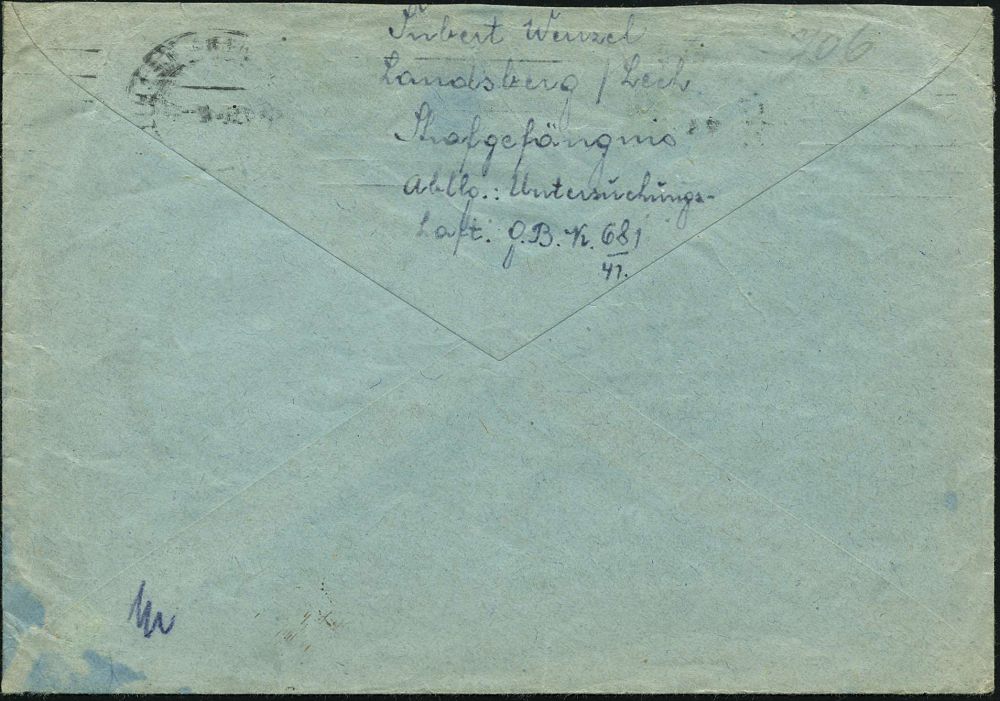 Hubert Wenzel
Landsberg / Lech
706
Strafgefängnis
Abtlg.: Untersuchungs-
haft. G.B.K. 681
41.